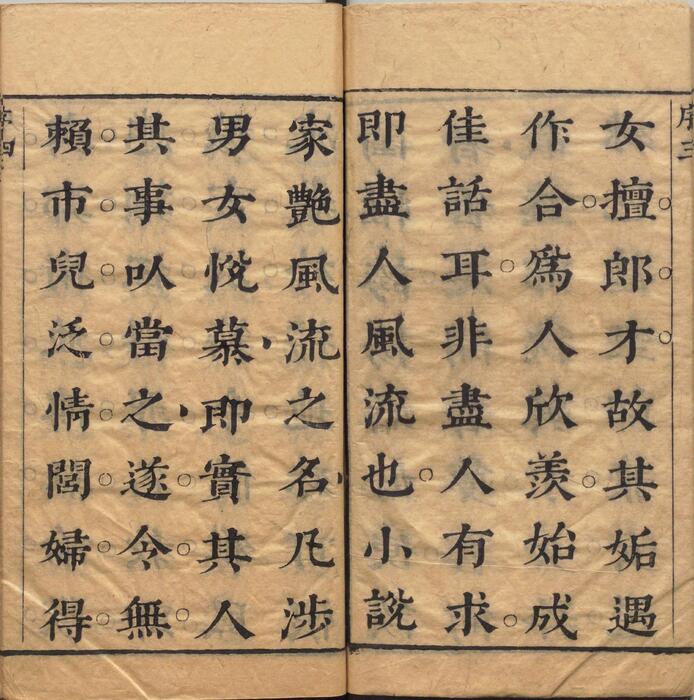 序三
女擅郎才故其姤遇
作合爲人欣羨始成
佳話耳非盡人有求
即盡人風流也小說
家艷風流之名凡涉
男女悅慕即實其人
其事以當之遂令無
賴市兒泛情閭婦得
序四